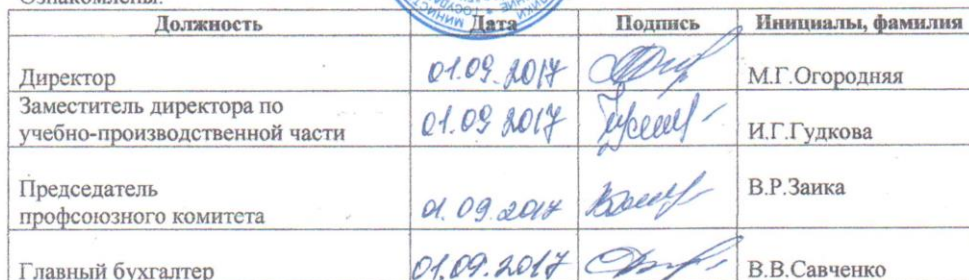 Ознакомлены:
Должность Дата Подпись Инициалы, фамилия
Директор 01.09.2017 М.Г.Огородняя
Заместитель директора по
учебно-производственной части 01.09 2017 И.Г.Гудкова
Председатель
профсоюзного комитета 01.09.2017 В.Р.Заика
Главный бухгалтер 01.09.2017 В.В.Савченко